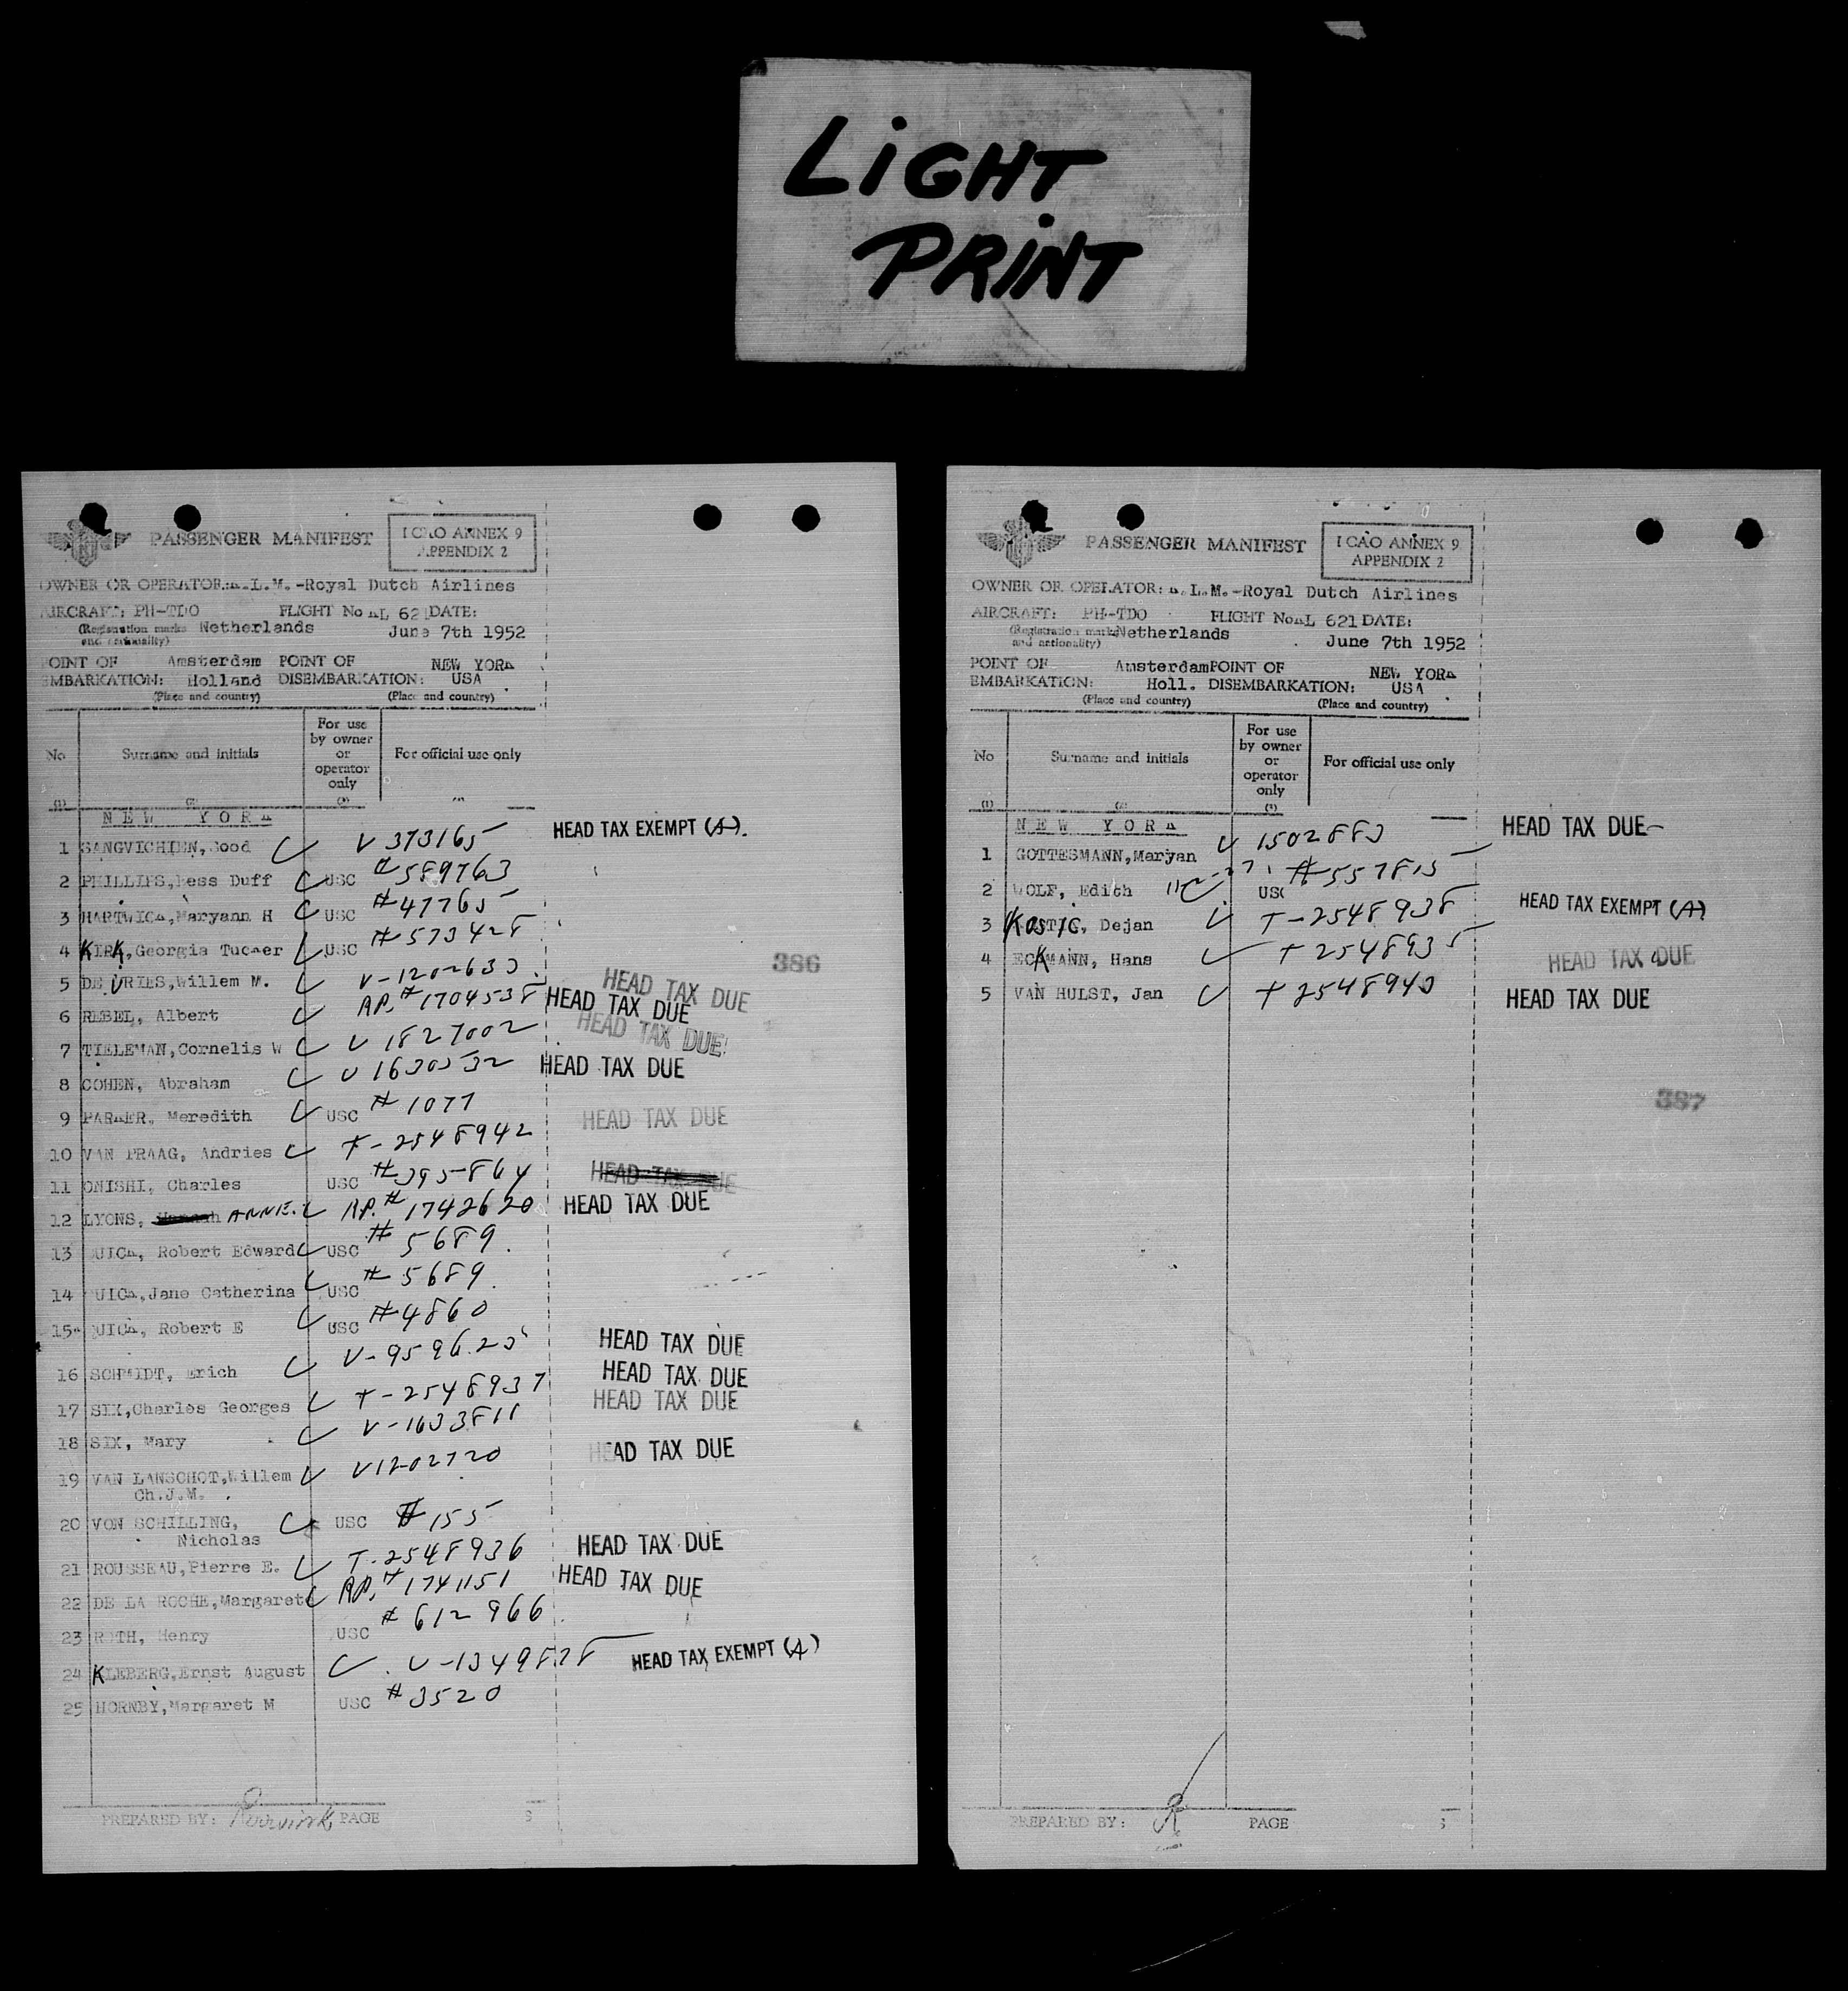 LiGHT
PRiNT
PASSENGER MANIFEST
ICAO ANNEX 9
APPENDIX 2
OWNER OR OPERATOR: K.L.M.-Royal Dutch Airlines
AIRCRAFT: PH-TDO FLIGHT No KL 621 DATE:
(Registration marks and nationality) Netherlands June 7th 1952
POINT OF EMBARKATION: Amsterdam Holland POINT OF DISEMBARKATION: NEW YORK USA
(Place and country) (Place and country)
No Surname and initials For use by owner or operator only For official use only
(1) (2) (3)
NEW YORK
1 SANGVICHIEN, Sood V 373165 HEAD TAX EXEMPT (A).
2 PHILLIPS, Bess Duff USC #589763
3 HARTWICK, Maryann H USC #47765
4 KIRK, Georgia Tucker USC #573428
386
5 DE VRIES, Willem M. V-1202630 HEAD TAX DUE
6 REBEL, Albert AP.#1704538 HEAD TAX DUE
7 TIELEMAN, Cornelis W V 1827002 HEAD TAX DUE
8 COHEN, Abraham V 1630532 HEAD TAX DUE
9 PARKER, Meredith USC #1077
10 VAN PRAAG, Andries T-2548942 HEAD TAX DUE
11 ONISHI, Charles USC #395864 HEAD TAX DUE
12 LYONS, Hannah ANNIE. AP.#1742620 HEAD TAX DUE
13 QUICK, Robert Edward USC #5689.
14 QUICK, Jane Catherina USC #5689.
15 QUICK, Robert E USC #4860
16 SCHMIDT, Erich V-959620 HEAD TAX DUE
17 SIX, Charles Georges T-2548937 HEAD TAX DUE
18 SIX, Mary V-1633811 HEAD TAX DUE
19 VAN LANSCHOT, Willem V1202720 HEAD TAX DUE
Ch.J.M.
20 VON SCHILLING, USC #155
Nicholas
21 ROUSSEAU, Pierre E. T-2548936 HEAD TAX DUE
22 DE LA ROCHE, Margaret AP.#1741151 HEAD TAX DUE
23 ROTH, Henry USC #612966
24 KLEBERG, Ernst August V-1349828 HEAD TAX EXEMPT (A)
25 HORNBY, Margaret M USC #3520
PREPARED BY: PAGE
PASSENGER MANIFEST
ICAO ANNEX 9
APPENDIX 2
OWNER OR OPERATOR: K.L.M.-Royal Dutch Airlines
AIRCRAFT: PH-TDO FLIGHT No KL 621 DATE:
(Registration marks and nationality) Netherlands June 7th 1952
POINT OF EMBARKATION: Amsterdam Holl. POINT OF DISEMBARKATION: NEW YORK USA
(Place and country) (Place and country)
No Surname and initials For use by owner or operator only For official use only
(1) (2) (3)
NEW YORK
1 GOTTESMANN, Maryan V 1502880 HEAD TAX DUE
2 WOLF, Edith USC #557815
3 KOSTIC, Dejan T-2548938 HEAD TAX EXEMPT (A)
4 ECKMANN, Hans T 2548935 HEAD TAX DUE
5 VAN HULST, Jan T 2548940 HEAD TAX DUE
387
PREPARED BY: PAGE